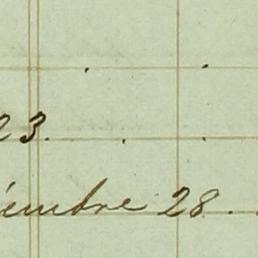 23.
embre 28.